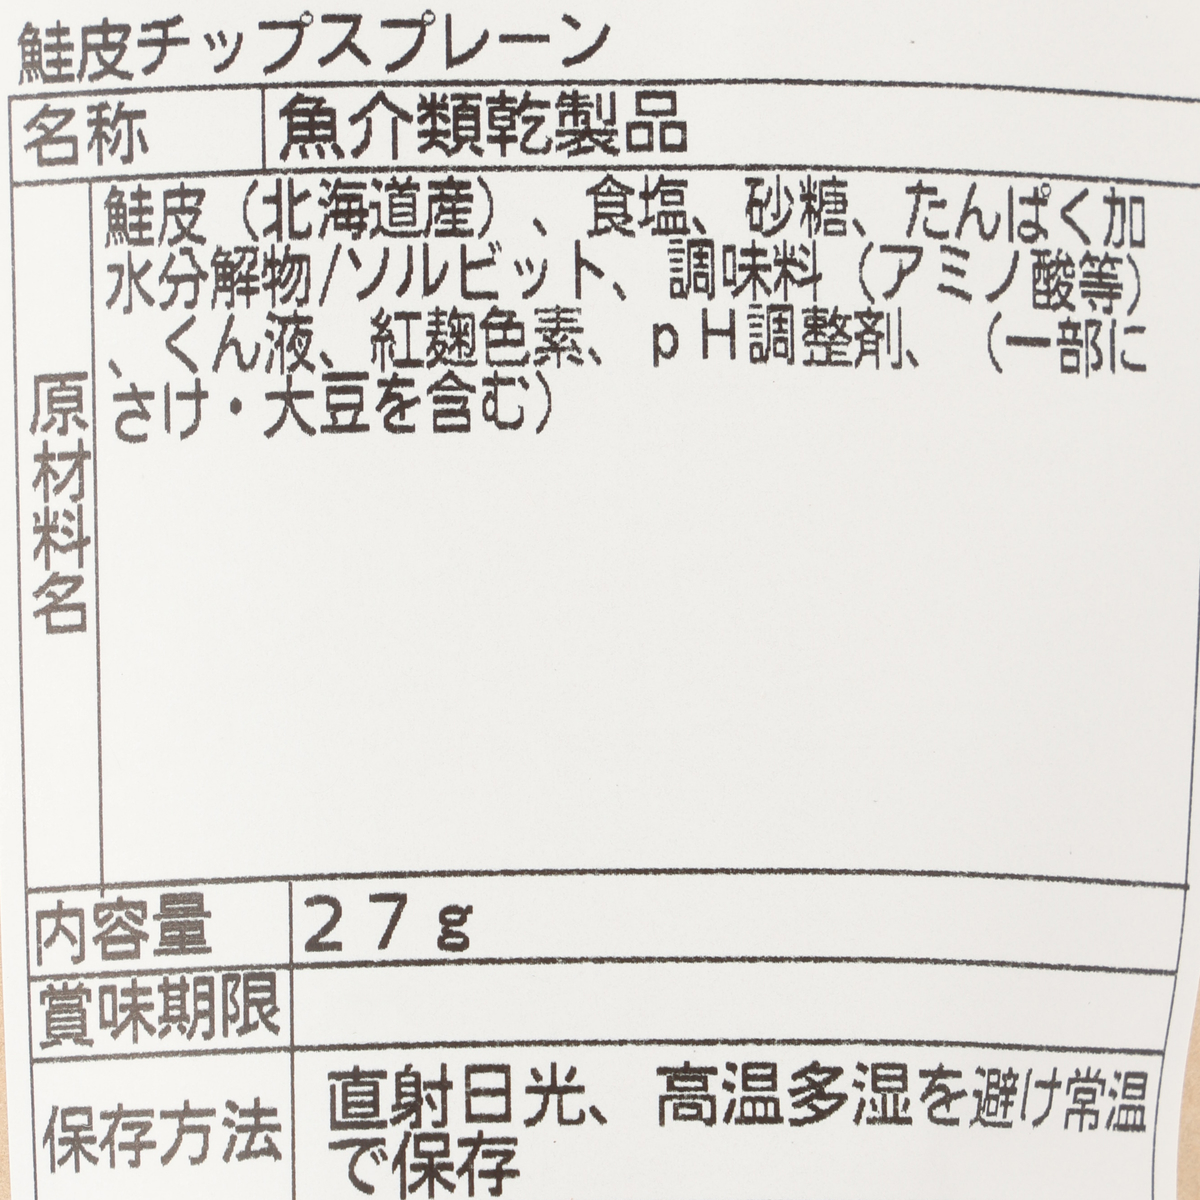 鮭皮チップスプレーン
名称
魚介類乾製品
原材料名
鮭皮（北海道産）、食塩、砂糖、たんぱく加
水分解物/ソルビット、調味料（アミノ酸等）
、くん液、紅麹色素、ｐＨ調整剤、（一部に
さけ・大豆を含む）
内容量
２７ｇ
賞味期限
保存方法
直射日光、高温多湿を避け常温
で保存